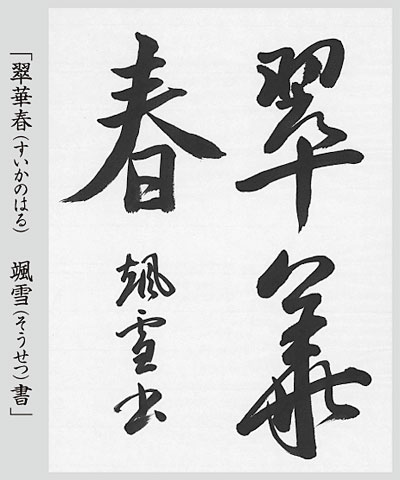 翠華
春
颯雪書
「翠華春(すいかのはる) 颯雪(そうせつ)書」